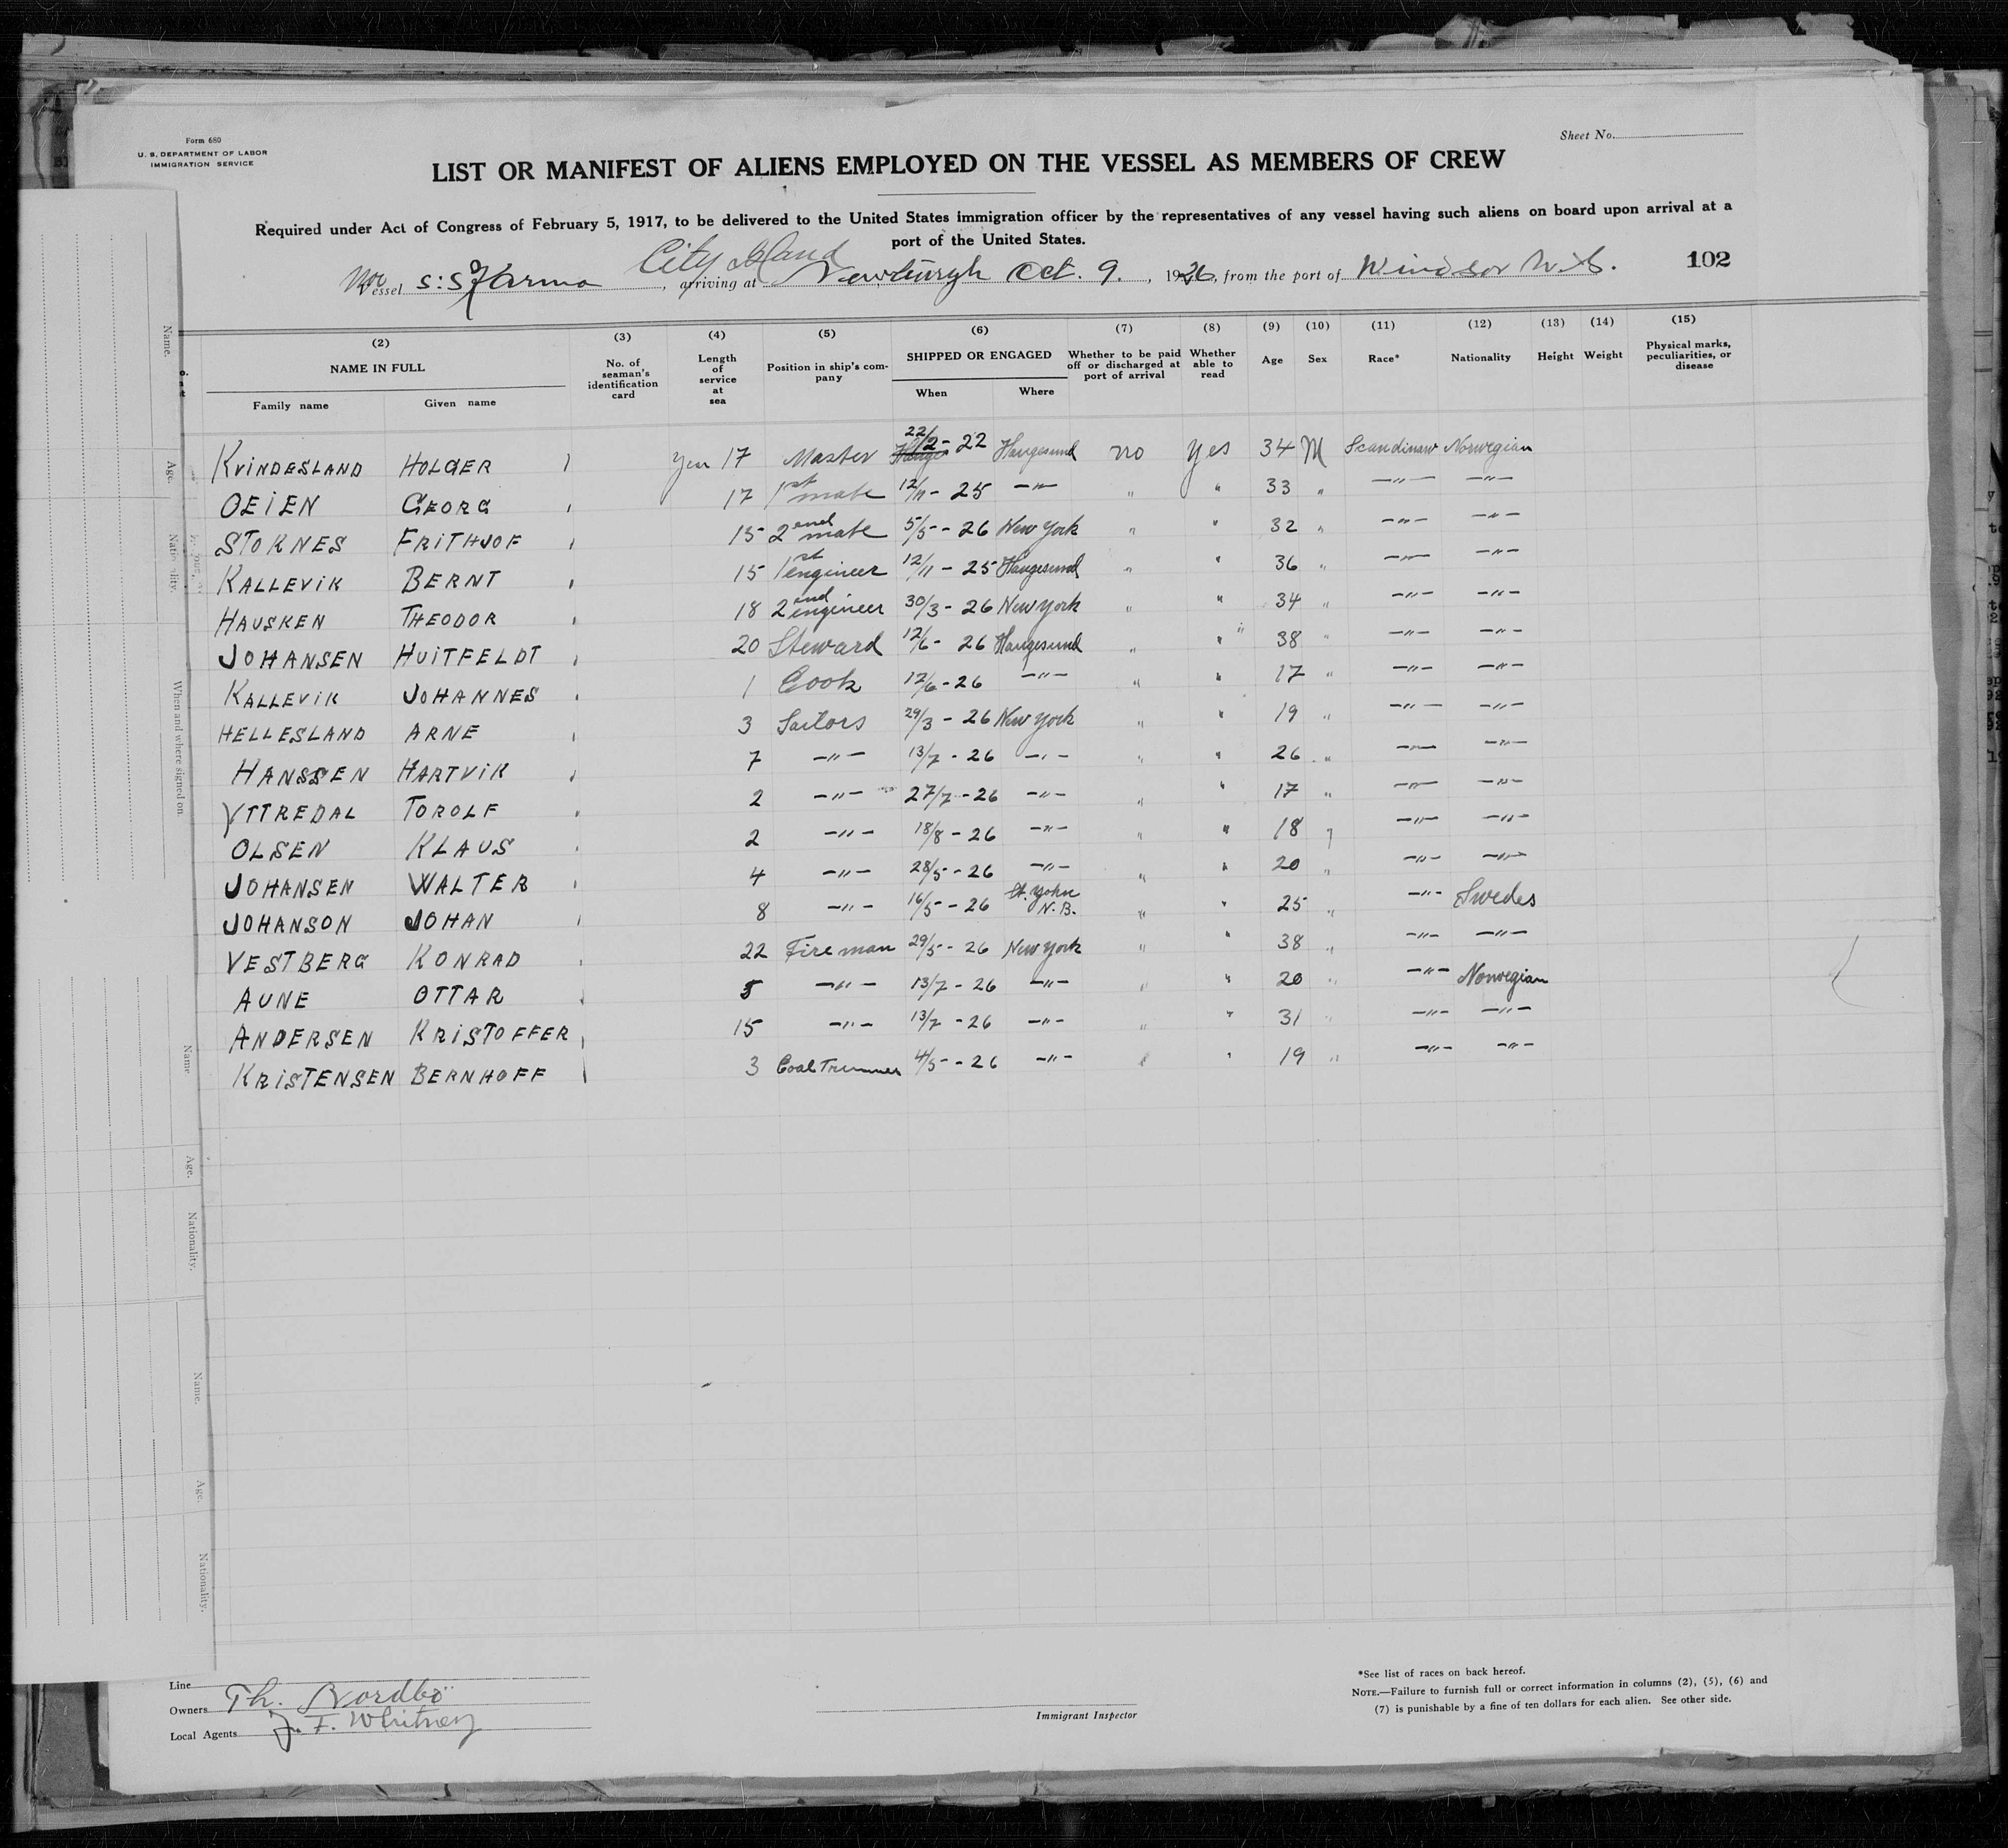 Form 680
U. S. DEPARTMENT OF LABOR
IMMIGRATION SERVICE
Sheet No.
LIST OR MANIFEST OF ALIENS EMPLOYED ON THE VESSEL AS MEMBERS OF CREW
Required under Act of Congress of February 5, 1917, to be delivered to the United States immigration officer by the representatives of any vessel having such aliens on board upon arrival at a
port of the United States.
City Island
Vessel S:S , arriving at Newburgh Oct. 9. , 1926, from the port of Windsor N.S. 102
(2) (3) (4) (5) (6) (7) (8) (9) (10) (11) (12) (13) (14) (15)
NAME IN FULL No. of seaman's identification card Length of service at sea Position in ship's company SHIPPED OR ENGAGED Whether to be paid off or discharged at port of arrival Whether able to read Age Sex Race* Nationality Height Weight Physical marks, peculiarities, or disease
Family name Given name When Where
KVINDESLAND HOLGER 17 Master 22/12-22 Haugesund no Yes 34 M Scandinav Norwegian
OEIEN GEORG 17 1st mate 12/11- 25 -"- " " 33 " -"- -"-
STOKNES FRITHJOF 15 2end mate 5/5- 26 New York " " 32 " -"- -"-
KALLEVIK BERNT 15 1st engineer 12/11- 25 Haugesund " " 36 " -"- -"-
HAUSKEN THEODOR 18 2end engineer 30/3- 26 New York " " 34 " -"- -"-
JOHANSEN HUITFELDT 20 Steward 12/6- 26 Haugesund " " 38 " -"- -"-
KALLEVIK JOHANNES 1 Cook 12/6-26 -"- " " 17 " -"- -"-
HELLESLAND ARNE 3 Sailors 29/3- 26 New York " " 19 " -"- -"-
HANSSEN HARTVIK 7 -"- 13/7- 26 -"- " " 26 " -"- -"-
YTTREDAL TOROLF 2 -"- 27/7-26 -"- " " 17 " -"- -"-
OLSEN KLAUS 2 -"- 18/8- 26 -"- " " 18 " -"- -"-
JOHANSEN WALTER 4 -"- 28/5- 26 -"- " " 20 " -"- -"-
JOHANSON JOHAN 8 -"- 16/5- 26 St. John N.B. " " 25 " -"- Swedes
VESTBERG KONRAD 22 Fireman 29/5- 26 New York " " 38 " -"- -"-
AUNE OTTAR 5 -"- 13/7- 26 -"- " " 20 " -"- Norwegian
ANDERSEN KRISTOFFER 15 -"- 13/7-26 -"- " " 31 " -"- -"-
KRISTENSEN BERNHOFF 3 Coal Trimmer 4/5- 26 -"- " " 19 " -"- -"-
Name.
Age.
Nationality.
When and where signed on.
Name
Age.
Nationality.
Name.
Age.
Nationality.
Line
Owners Th. Nordbö
Local Agents J. F. Whitney
Immigrant Inspector
*See list of races on back hereof.
NOTE.—Failure to furnish full or correct information in columns (2), (5), (6) and
(7) is punishable by a fine of ten dollars for each alien. See other side.